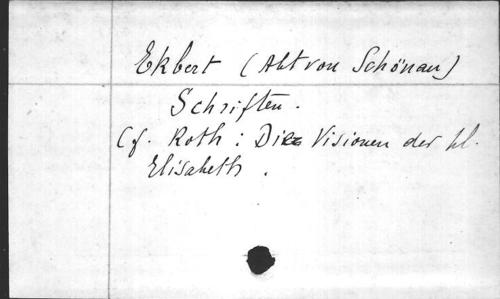 Ekbert (Abt von Schönau)
Schriften.
Cf. Roth: Die Visionen der hl.
Elisabeth.